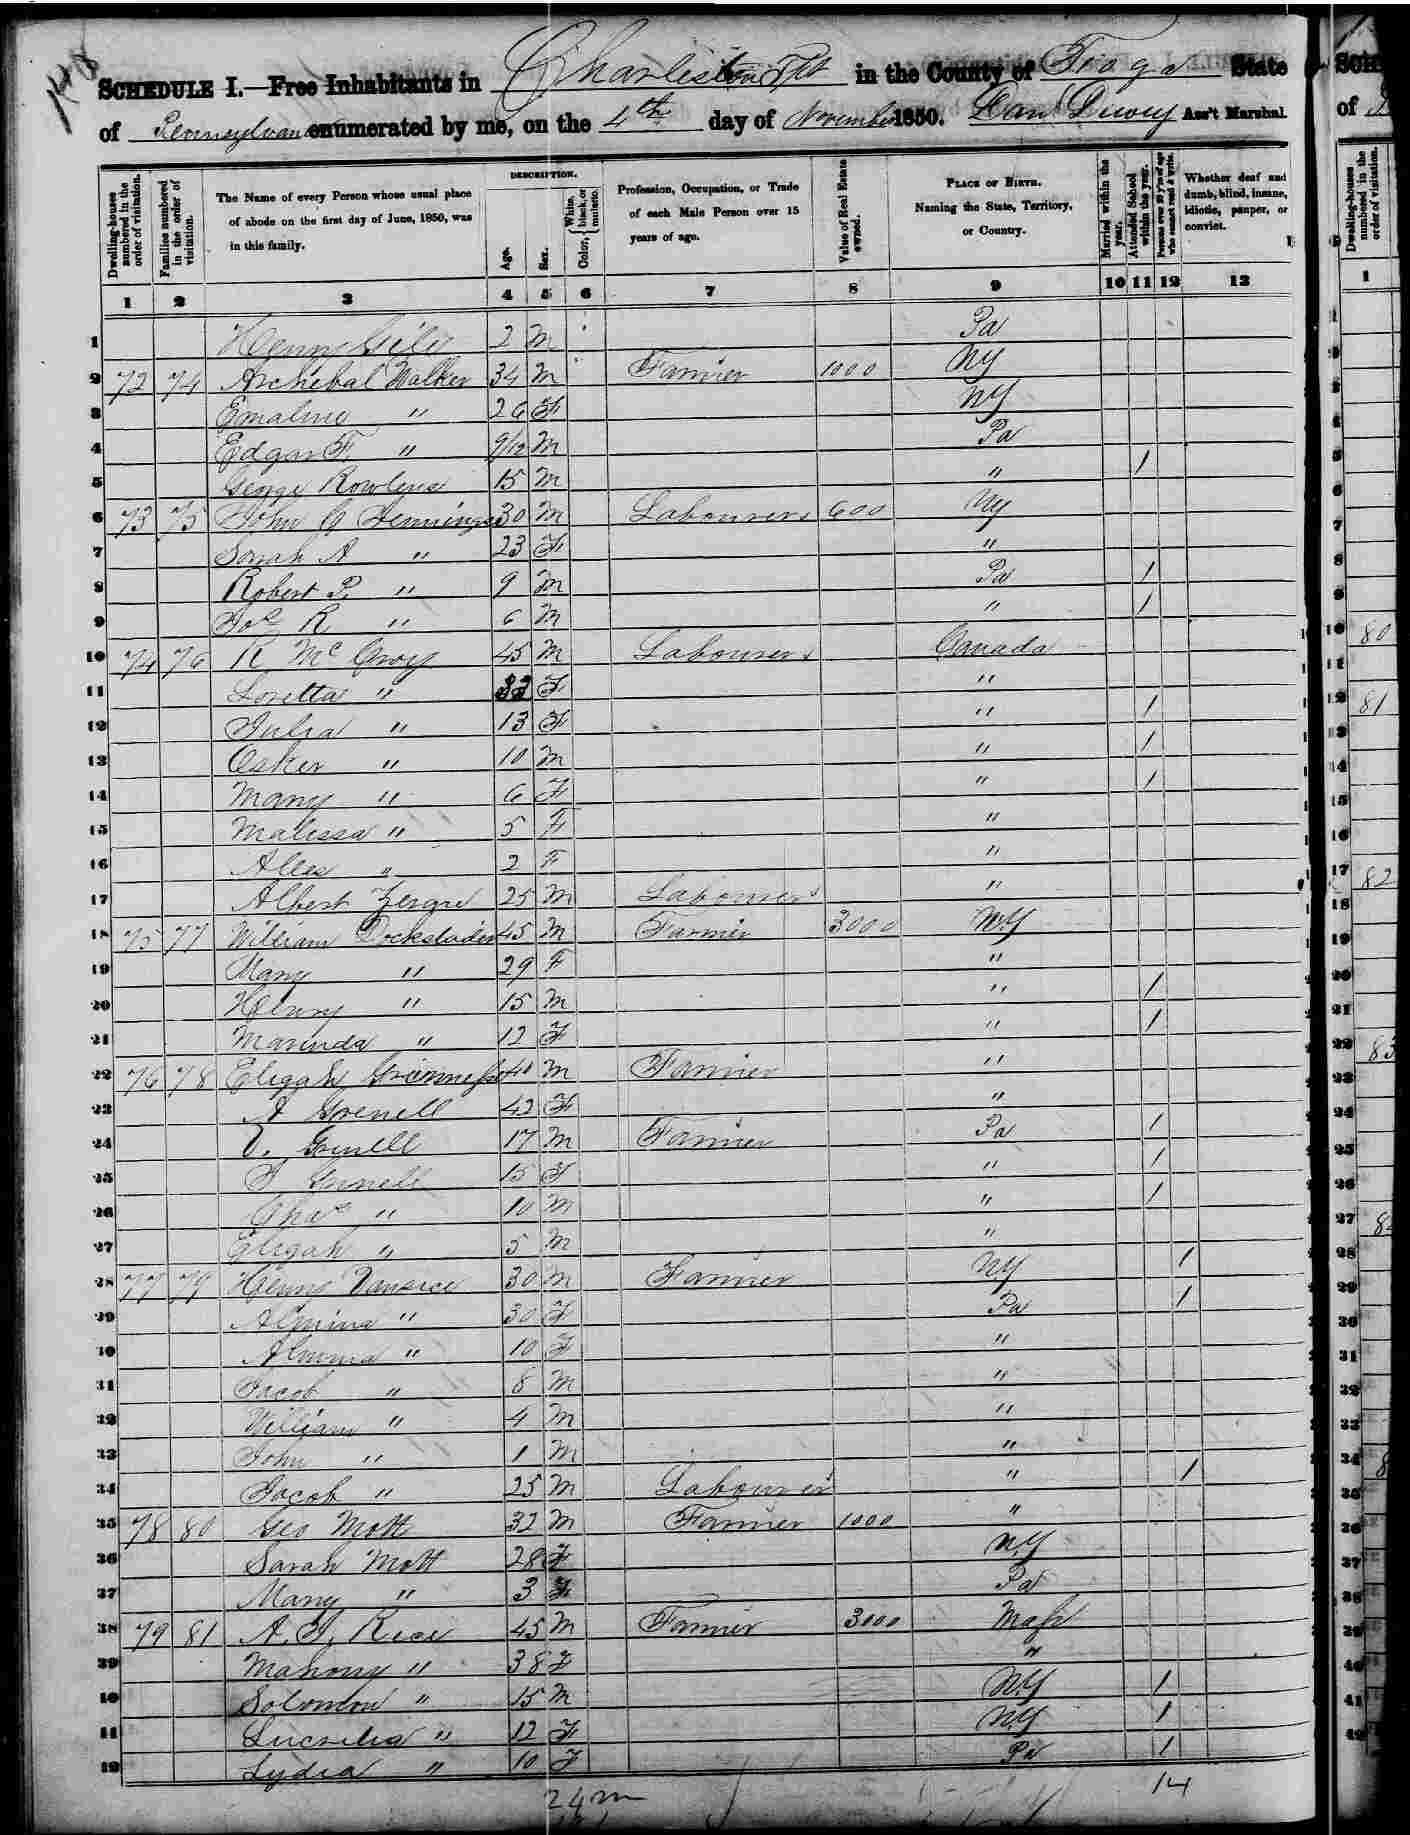 SCHEDULE I.—Free Inhabitants in Charleston in the County of Tioga State
of Pennsylvan enumerated by me, on the 4th day of November 1850. Ass't Marshal.
Dwelling-houses numbered in the order of visitation.
Families numbered in the order of visitation.
The Name of every Person whose usual place of abode on the first day of June, 1850, was in this family.
DESCRIPTION.
Age.
Sex.
Color, White, black, or mulatto.
Profession, Occupation, or Trade of each Male Person over 15 years of age.
Value of Real Estate owned.
PLACE OF BIRTH. Naming the State, Territory, or Country.
Married within the year.
Attended School within the year.
Persons over 20 y'rs of age who cannot read & write.
Whether deaf and dumb, blind, insane, idiotic, pauper, or convict.
1 2 3 4 5 6 7 8 9 10 11 12 13
1 Henry 2 M Pa
2 72 74 Archibal Walker 34 M Farmer 1000 NY
3 Emaline " 26 F NY
4 Edgar F. " 9/12 M Pa
5 George 15 M " 1
6 73 75 John Jennings 30 M Labourer 600 NY
7 Sarah A " 23 F "
8 Robert P. " 9 M Pa 1
9 R " 6 M " 1
10 74 76 R Mc 45 M Labourer Canada
11 Loretta " 33 F "
12 Julia " 13 F " 1
13 Osker " 10 M " 1
14 Mary " 6 F " 1
15 Malissa " 5 F "
16 Alles " 2 F "
17 Albert 25 M Labourer "
18 75 77 William Dockstader 45 M Farmer 3000 NY
19 Mary " 29 F "
20 Henry " 15 M " 1
21 Marinda " 12 F " 1
22 76 78 Eligah M Farmer "
23 A Grenell 42 F "
24 Grinell 17 M Farmer Pa 1
25 Grinell 15 F " 1
26 Chas " 10 M " 1
27 Eligah " 5 M "
28 77 79 Henry Vansice 30 M Farmer NY 1
29 Almira " 30 F Pa 1
30 Almina " 10 F "
31 Jacob " 8 M "
32 William " 4 M "
33 John " 1 M "
34 Jacob " 25 M Labourer " 1
35 78 80 Geo Mott 32 M Farmer 1000 "
36 Sarah Mott 28 F NY
37 Mary " 3 F Pa
38 79 81 A. Rice 45 M Farmer 3000 Mass
39 " 38 F "
40 Solomon " 15 M NY 1
41 Lucretia " 12 F NY 1
42 Lydia " 10 F Pa 1
24 m 14
80
81
82
83